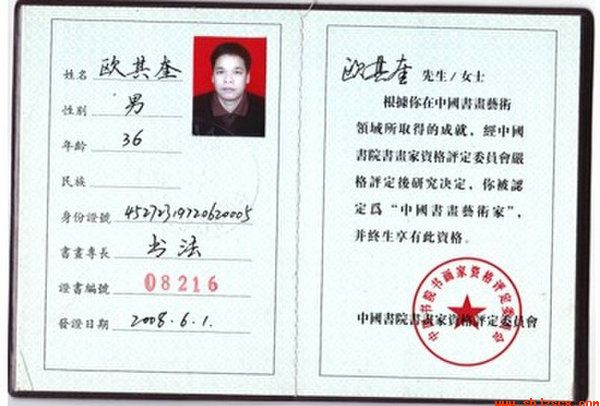 姓名 欧其奎
性别 男
年齡 36
民族
身份證號 45272319720620005
書畫專長 书法
證書編號 08216
發證日期 2008.6.1.
欧其奎 先生/女士
根據你在中國書畫藝術
領域所取得的成就，經中國
書院書畫家資格評定委員會嚴
格評定後研究決定，你被認
定爲“中國書畫藝術家”，
并終生享有此資格。
中国书院书画家资格评定委员会
中國書院書畫家資格評定委員會